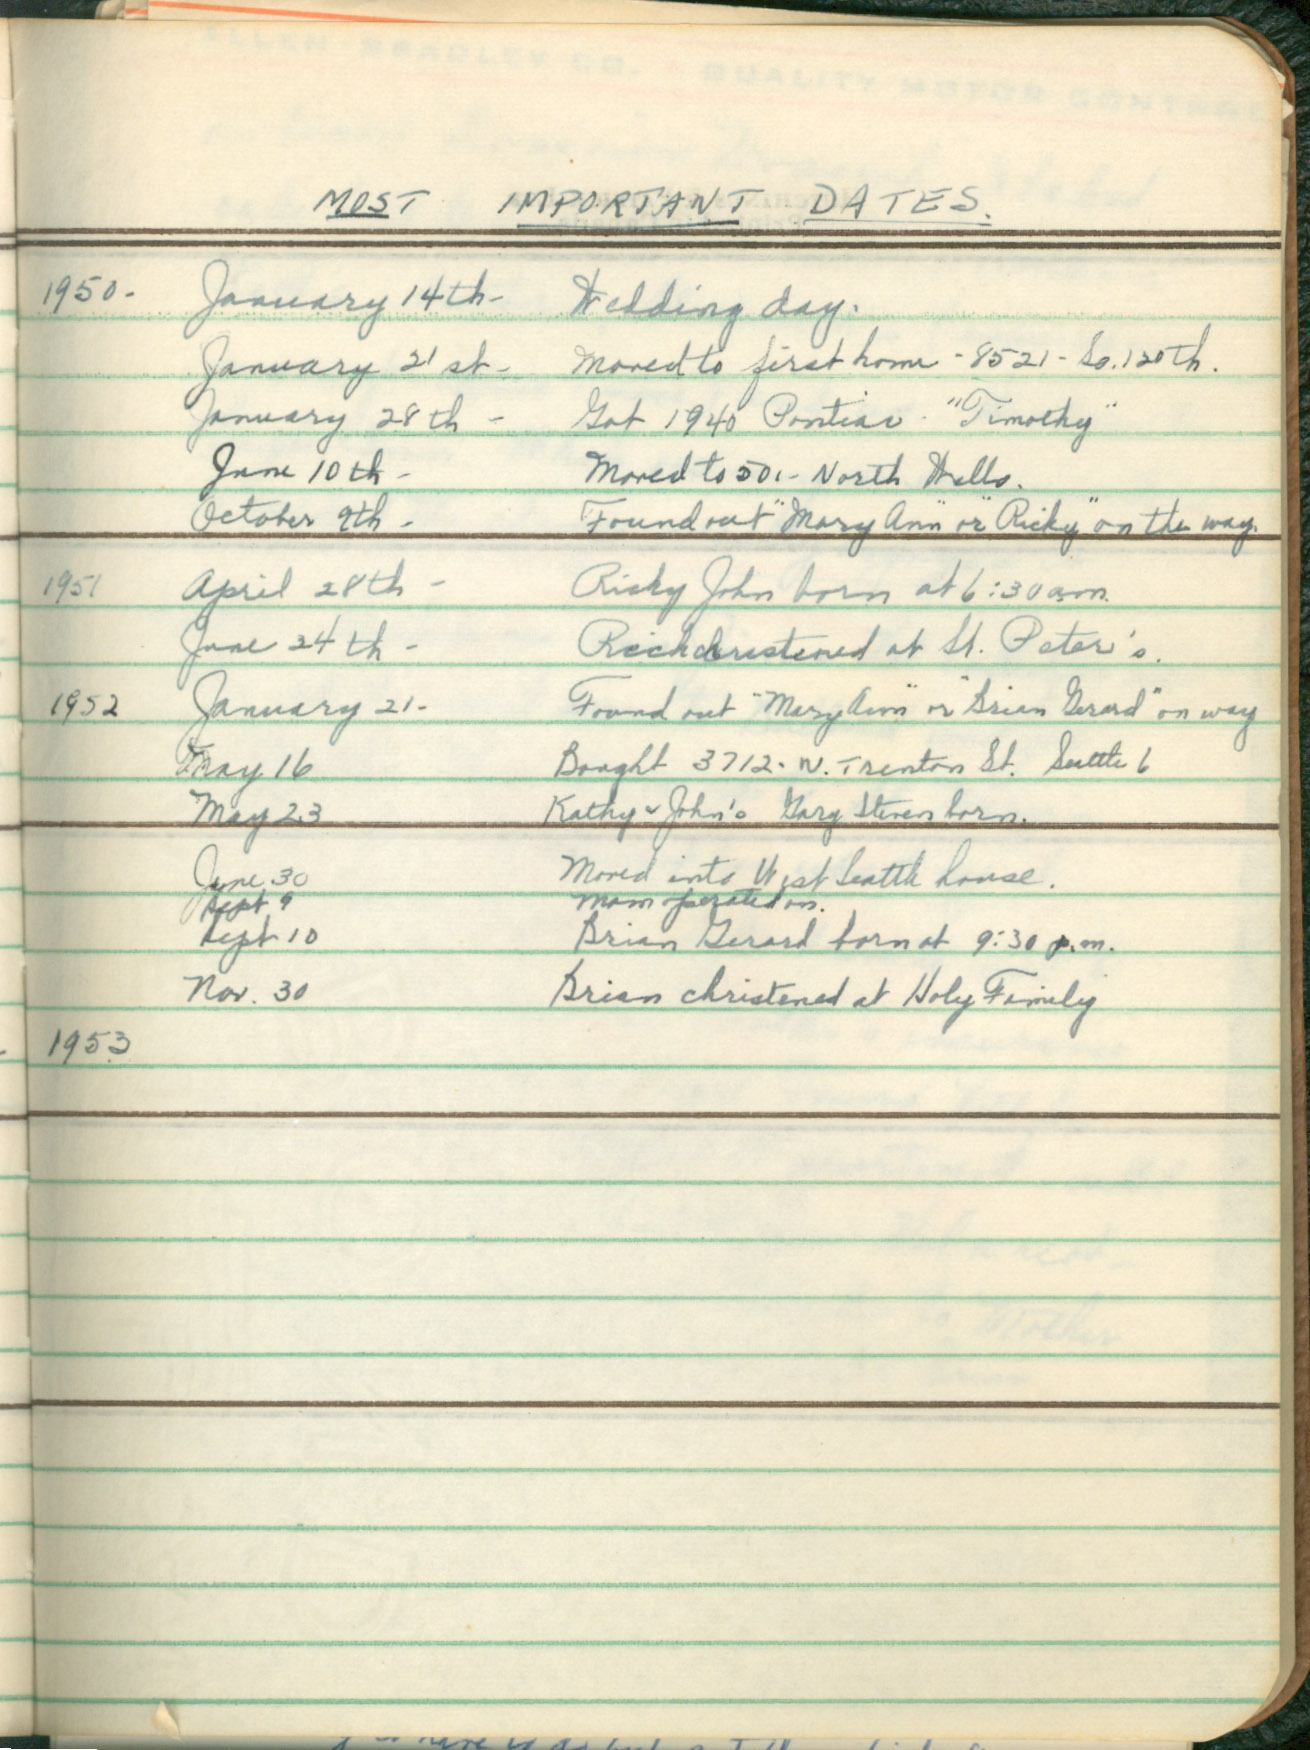 MOST IMPORTANT DATES.
1950- January 14th- Wedding day.
January 21st- Moved to first home - 8521- So. 120th.
January 28th - Got 1940 Pontiac "Timothy"
June 10th - Moved to 501- North Wells.
October 9th - Found out "Mary Ann" or "Ricky" on the way.
1951 April 28th - Ricky John born at 6:30 a.m.
June 24th - Rick christened at St. Peter's.
1952 January 21- Found out "Mary Ann" or "Brian Gerard" on way
May 16 Bought 3712- N. Trenton St. Seattle 6
May 23 Kathy & John's Gary Steven born.
June 30 Moved into West Seattle house.
Sept 9 Mom operated on.
Sept 10 Brian Gerard born at 9:30 p.m.
Nov. 30 Brian christened at Holy Family
1953